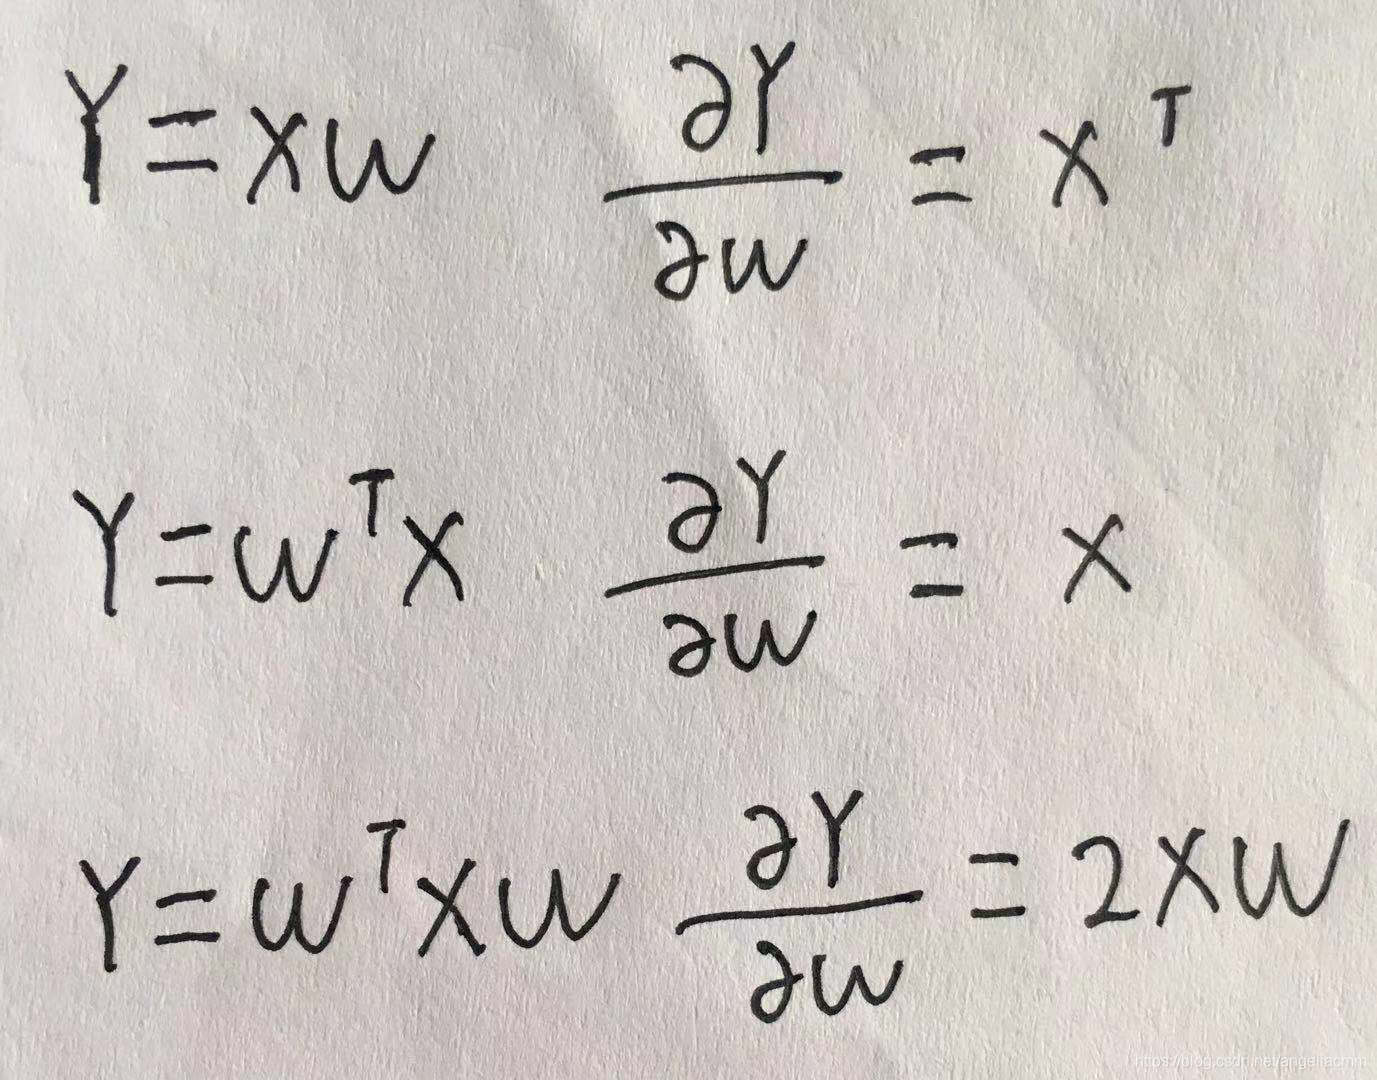 Y = XW   ∂Y/∂W = X^T
Y = W^T X   ∂Y/∂W = X
Y = W^T X W   ∂Y/∂W = 2XW
https://blog.csdn.net/angeliacmm